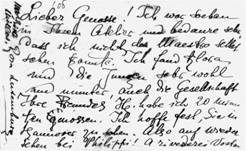 Lieber Genosse! Ich war soeben
in Ihrem Atelier und bedaure sehr,
dass ich nicht den Maestro selbst
sehen konnte. Ich fand
und die Jungen sehr wohl
und munter, auch die Gesellschaft
Ihres Freundes H. habe ich
genossen. Ich hoffe, Sie in
Hannover zu sehen. Also auf wieder
sehen bei Philippi! A rivederci
Rosa Luxemburg